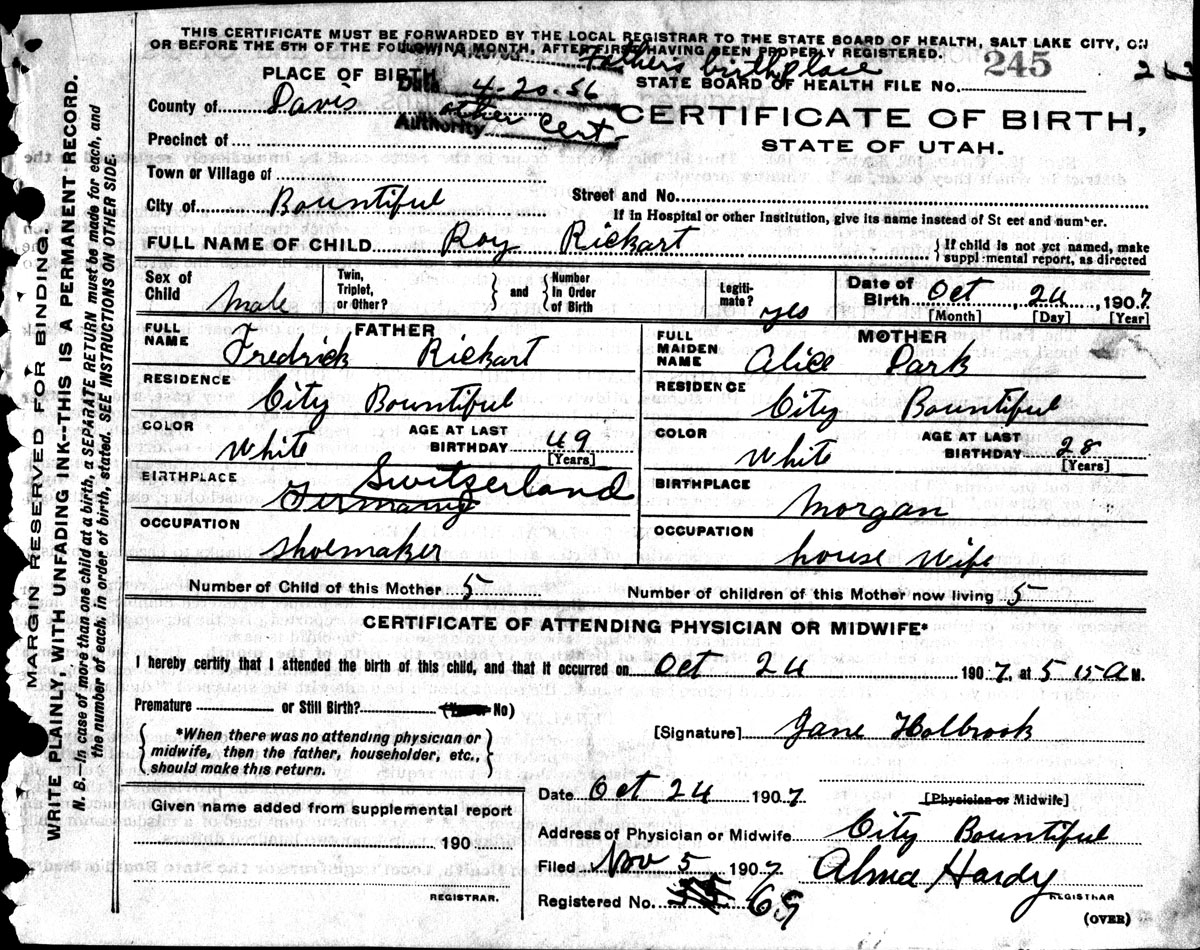 THIS CERTIFICATE MUST BE FORWARDED BY THE LOCAL REGISTRAR TO THE STATE BOARD OF HEALTH, SALT LAKE CITY, ON
OR BEFORE THE 5TH OF THE FOLLOWING MONTH, AFTER FIRST HAVING BEEN PROPERLY REGISTERED.
Father's birthplace
245
PLACE OF BIRTH
Date 4-20-56
STATE BOARD OF HEALTH FILE No.
County of Davis
Authority other cert
CERTIFICATE OF BIRTH,
STATE OF UTAH.
Precinct of
Town or Village of
City of Bountiful
Street and No.
If in Hospital or other Institution, give its name instead of St eet and number.
FULL NAME OF CHILD Roy Rickart
If child is not yet named, make
suppl mental report, as directed
Sex of Child male
Twin, Triplet, or Other?
and
Number In Order of Birth
Legiti-mate? yes
Date of Birth Oct, 24, 1907
[Month] [Day] [Year]
FATHER
FULL NAME Fredrick Rickart
RESIDENCE City Bountiful
COLOR White
AGE AT LAST BIRTHDAY 49
[Years]
BIRTHPLACE Switzerland
Germany
OCCUPATION shoemaker
MOTHER
FULL MAIDEN NAME Alice Park
RESIDENCE City Bountiful
COLOR White
AGE AT LAST BIRTHDAY 28
[Years]
BIRTHPLACE Morgan
OCCUPATION house wife
Number of Child of this Mother 5
Number of children of this Mother now living 5
CERTIFICATE OF ATTENDING PHYSICIAN OR MIDWIFE*
I hereby certify that I attended the birth of this child, and that it occurred on Oct 24 1907, at 5 15 A M.
Premature or Still Birth? No)
*When there was no attending physician or
midwife, then the father, householder, etc.,
should make this return.
[Signature] Jane Holbrook
Date Oct 24 1907
[Physician or Midwife]
Given name added from supplemental report
190
REGISTRAR.
Address of Physician or Midwife City Bountiful
Filed Nov 5 1907
Alma Hardy
REGISTRAR
Registered No. 69
(OVER)
MARGIN RESERVED FOR BINDING
WRITE PLAINLY, WITH UNFADING INK--THIS IS A PERMANENT RECORD.
N. B.--In case of more than one child at a birth, a SEPARATE RETURN must be made for each, and
the number of each, in order of birth, stated. SEE INSTRUCTIONS ON OTHER SIDE.